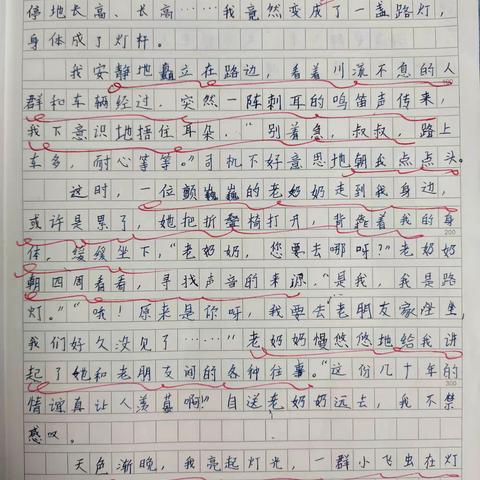 停地长高、长高……我竟然变成了一盏路灯，
身体成了灯杆。
我安静地矗立在路边，看着川流不息的人
群和车辆经过，突然一阵刺耳的鸣笛声传来，
我下意识地捂住耳朵，“别着急，叔叔，路上
车多，耐心等等。”司机不好意思地朝我点点头。
这时，一位颤巍巍的老奶奶走到我身边，
或许是累了，她把折叠椅打开，背靠着我的身
200
体，缓缓坐下，“老奶奶，您要去哪呀？”老奶奶
朝四周看看，寻找声音的来源。“是我，我是路
灯。”“哦！原来是你呀，我要去老朋友家坐坐，
我们好久没见了……”老奶奶慢悠悠地给我讲
起了她和老朋友间的各种往事。“这份几十年的
300
情谊真让人羡慕啊！”目送老奶奶远去，我不禁
感叹。
天色渐晚，我亮起灯光，一群小飞虫在灯